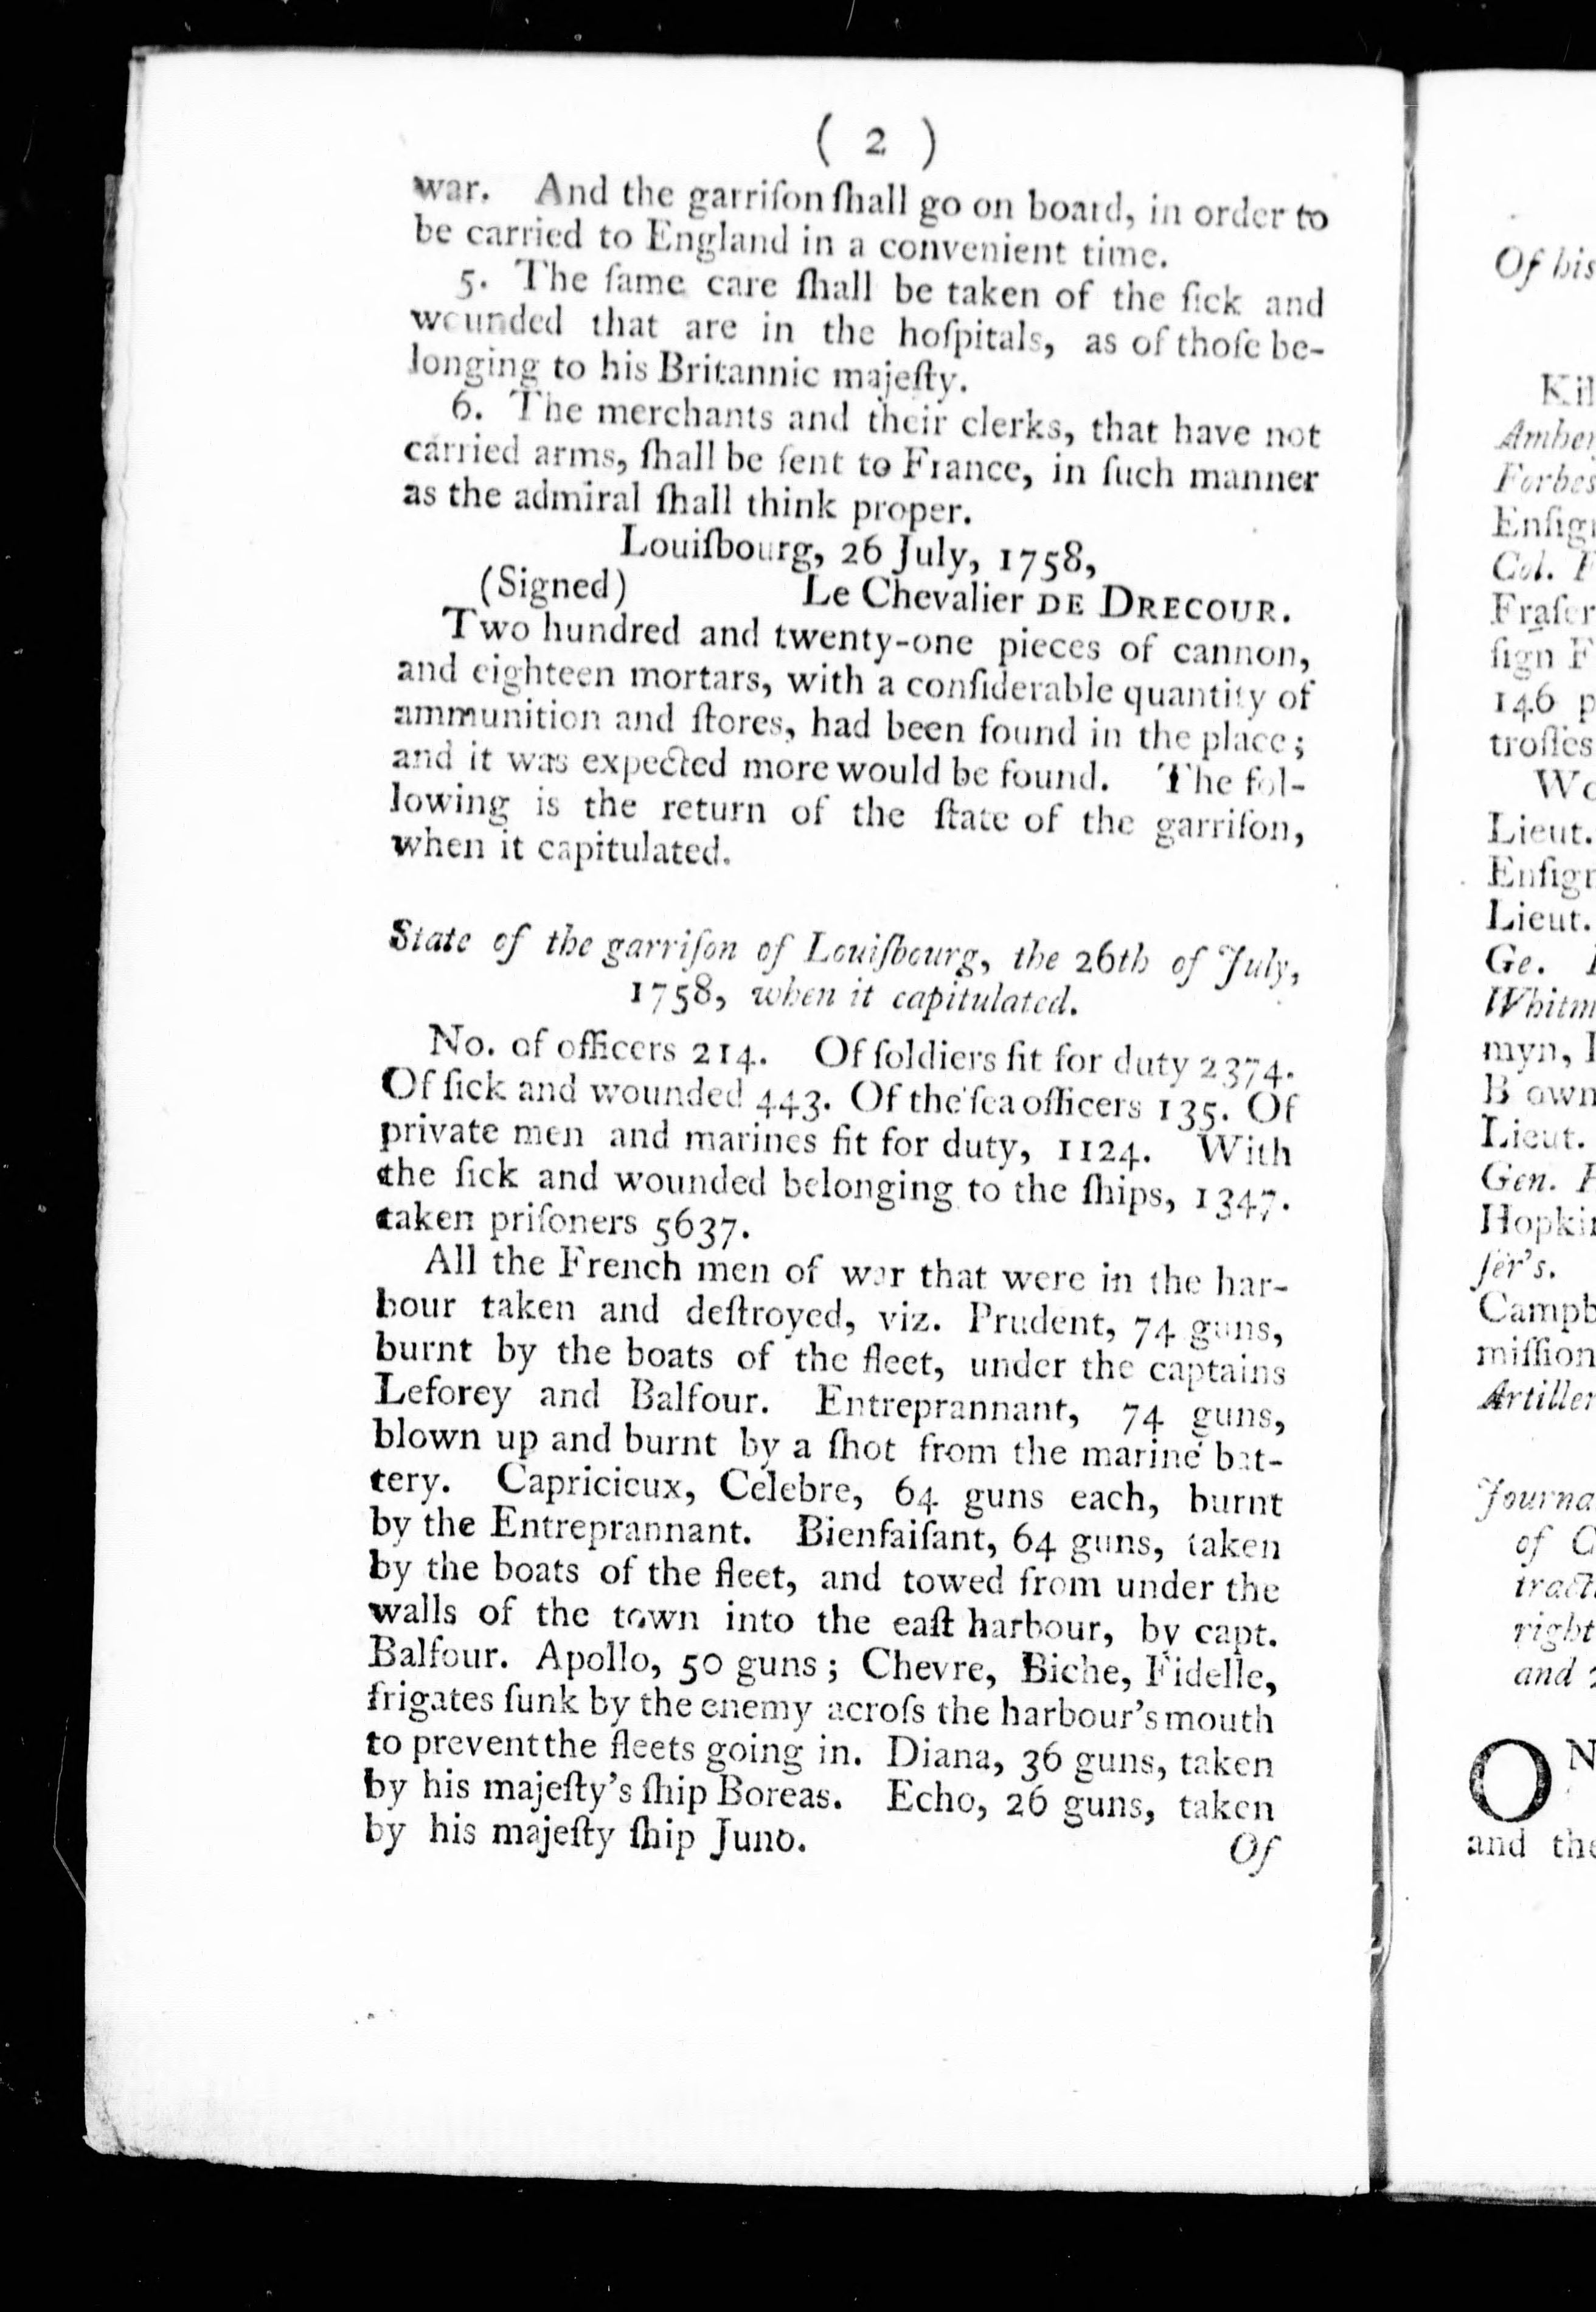 ( 2 )
war. And the garriſon ſhall go on board, in order to
be carried to England in a convenient time.
5. The ſame care ſhall be taken of the ſick and
wounded that are in the hoſpitals, as of thoſe be-
longing to his Britannic majeſty.
6. The merchants and their clerks, that have not
carried arms, ſhall be ſent to France, in ſuch manner
as the admiral ſhall think proper.
Louiſbourg, 26 July, 1758,
(Signed) Le Chevalier DE DRECOUR.
Two hundred and twenty-one pieces of cannon,
and eighteen mortars, with a conſiderable quantity of
ammunition and ſtores, had been found in the place;
and it was expected more would be found. The fol-
lowing is the return of the ſtate of the garriſon,
when it capitulated.
State of the garriſon of Louiſbourg, the 26th of July,
1758, when it capitulated.
No. of officers 214. Of ſoldiers fit for duty 2374.
Of ſick and wounded 443. Of the ſea officers 135. Of
private men and marines fit for duty, 1124. With
the ſick and wounded belonging to the ſhips, 1347.
taken priſoners 5637.
All the French men of war that were in the har-
bour taken and deſtroyed, viz. Prudent, 74 guns,
burnt by the boats of the fleet, under the captains
Leforey and Balfour. Entreprannant, 74 guns,
blown up and burnt by a ſhot from the marine bat-
tery. Capricieux, Celebre, 64 guns each, burnt
by the Entreprannant. Bienfaiſant, 64 guns, taken
by the boats of the fleet, and towed from under the
walls of the town into the eaſt harbour, by capt.
Balfour. Apollo, 50 guns; Chevre, Biche, Fidelle,
frigates ſunk by the enemy acroſs the harbour's mouth
to prevent the fleets going in. Diana, 36 guns, taken
by his majeſty's ſhip Boreas. Echo, 26 guns, taken
by his majeſty ſhip Juno.
Of
Of his
Kil
Amher
Forbes
Enſig
Col. F
Fraſer
ſign F
146 p
troſſes
Wo
Lieut.
Enſigr
Lieut.
Ge.
Whitm
myn,
B own
Lieut.
Gen.
Hopki
ſer's.
Campb
miſſion
Artiller
Journa
of
tract
right
and
ON
and the